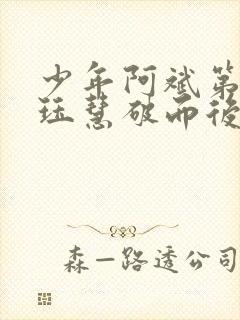 少年阿斌第
珏慧破而後
森一路透公司